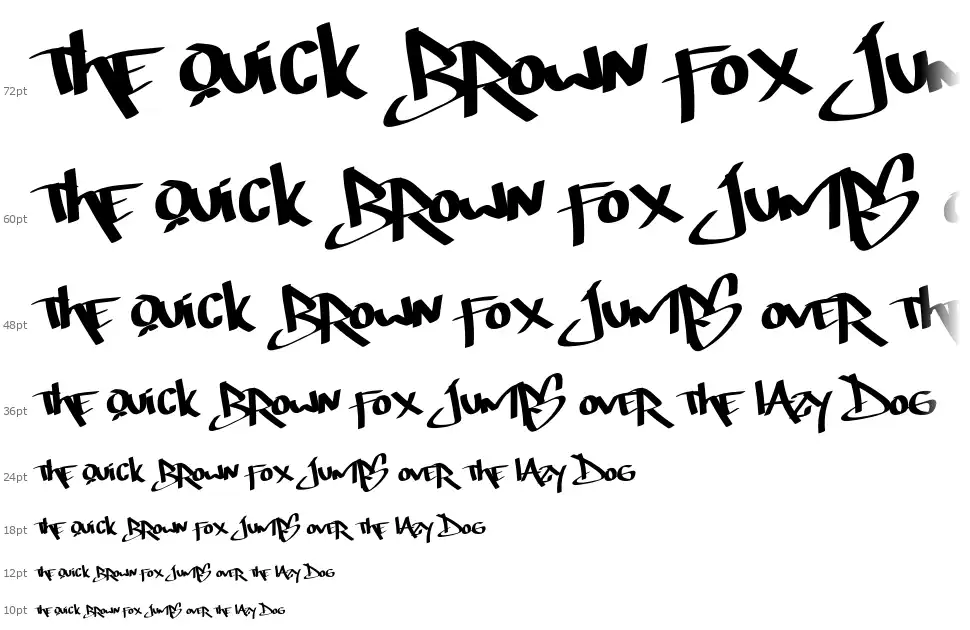 72pt The Quick Brown Fox Jum
60pt The Quick Brown Fox Jumps
48pt The Quick Brown Fox Jumps over the
36pt The Quick Brown Fox Jumps over the lazy Dog
24pt The Quick Brown Fox Jumps over the lazy Dog
18pt The Quick Brown Fox Jumps over the lazy Dog
12pt The Quick Brown Fox Jumps over the lazy Dog
10pt The Quick Brown Fox Jumps over the lazy Dog